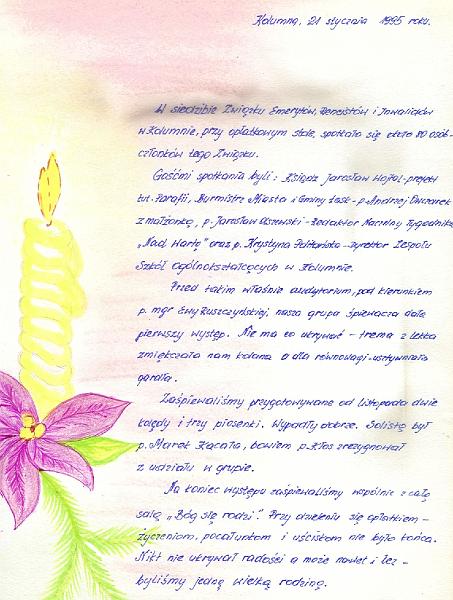 Kolumna, 21 stycznia 1995 roku.
W siedzibie Związku Emerytów, Rencistów i Inwalidów
w Kolumnie, przy opłatkowym stole, spotkało się około 80 osób-
członków tego Związku.
Gośćmi spotkania byli: Ksiądz Jarosław
tut. Parafii, Burmistrz Miasta i Gminy Łask - p. Andrzej Owczarek
z małżonką, p. Jarosław - Redaktor Naczelny Tygodnika
oraz p. Krystyna - Dyrektor Zespołu
Szkół Ogólnokształcących w Kolumnie.
Przed takim właśnie audytorium, pod kierunkiem
p. mgr Ewy Ruszczyńskiej, nasza grupa śpiewacza dała
pierwszy występ. Nie ma co ukrywać - trema z lekka
zmiękczała nam kolana a dla równowagi - usztywniała
gardła.
Zaśpiewaliśmy przygotowywane od listopada dwie
kolędy i trzy piosenki. Wypadły dobrze. Solistą był
p. Marek Kacała, bowiem p. Kłos zrezygnował
z udziału w grupie.
Na koniec występu zaśpiewaliśmy wspólnie z całą
salą „Bóg się rodzi". Przy dzieleniu się opłatkiem -
życzeniom, pocałunkom i uściskom nie było końca.
Nikt nie ukrywał radości a może nawet i łez -
byliśmy jedną wielką rodziną.